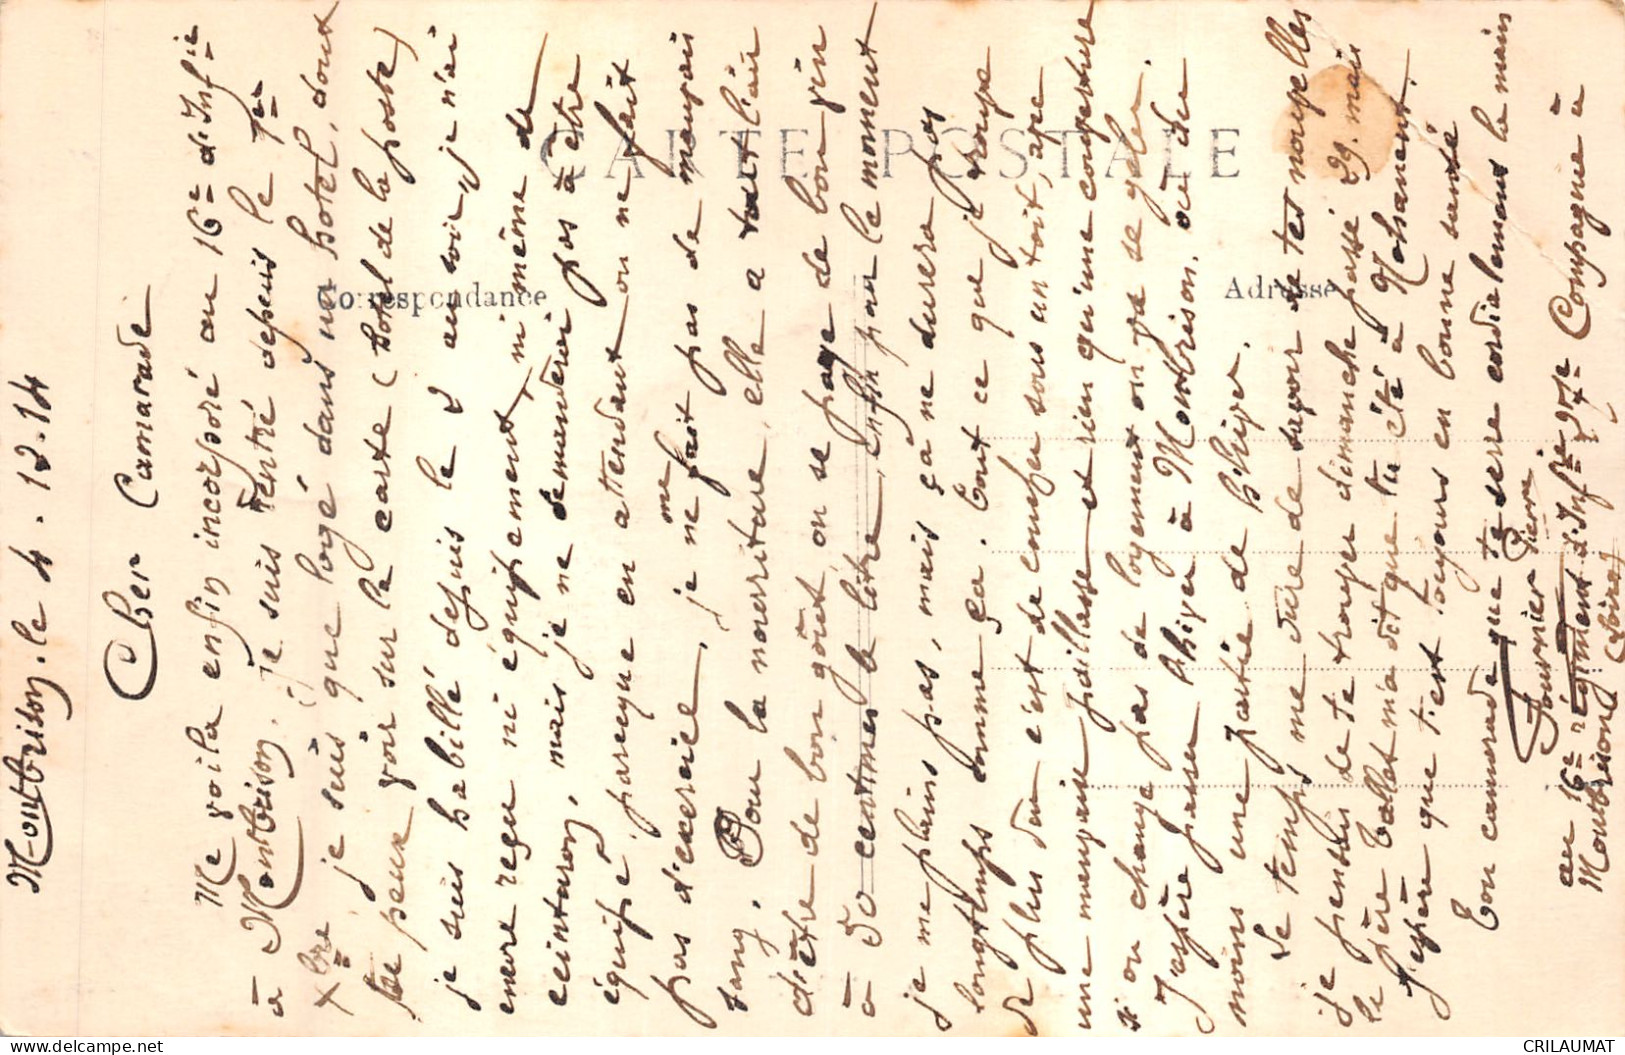 Montbrison. le 4. 12. 14
Cher Camarade
Me voila enfin incorporé au 16e d'Infie
à Montbrison. je suis rentré depuis le 1er
Xbre je suis que logé dans un hotel, dont
tu peux voir sur la carte (hotel de la poste)
je suis habillé depuis le 2 au soir, je n'ai
encore reçu ni équipement, ni même de
ceinturon, mais je ne demanderai pas à être
équipé, parceque en attendant on ne fait
pas d'exercice, je ne me fait pas de mauvais
sang. Pour la nourriture, elle a tout l'air
d'être de bon goût on se paye de bon vin
à 50 centimes le litre, enfin pour le moment
je me plains pas, mais ça ne durera pas
longtemps comme ça. Tout ce que je trouve
de plus dur c'est de coucher sous un toit, avec
une mauvaise paillasse et rien qu'une couverture
si on change pas de logement on va se geler.
J'espère passer l'hiver à Montbrison. ou du
moins une partie de l'hiver.
Le temps me dure de savoir de tes nouvelles
je pensais de te trouver dimanche passé 29. mais
le père Tallet m'a dit que tu été à Nohanent.
J'espère que tu est toujours en bonne santé
Ton camarade que te serre cordialement la main
Fournier Pierre
au 16e régiment d'Infie 27e Compagnie à
Montbrison (Loire)
CARTE POSTALE
Correspondance
Adresse
CRILAUMAT